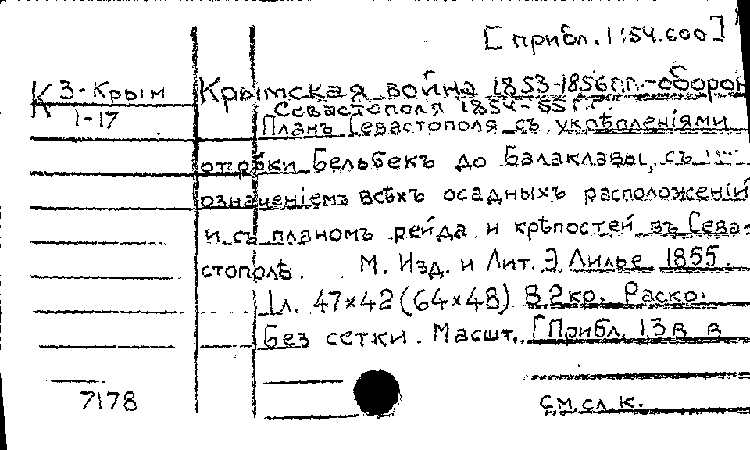 [прибл. 1:54.600]
К 3-Крым
1-17
Крымская война 1853-1856гг.-оборон
Севастополя 1854-55гг.
Планъ Севастополя съ укрѣпленіями
отъ рѣки Бельбекъ до Балаклавы, съ
означеніемъ всѣхъ осадныхъ расположеній
и съ планомъ рейда и крѣпостей въ Сева-
стополѣ. М. Изд. и Лит. Э. Лилье 1855.
1л. 47×42 (64×48) В 2 кр. Раскр.
Без сетки. Масшт. [Прибл. 1:3 в в
7178
см.сл.к.